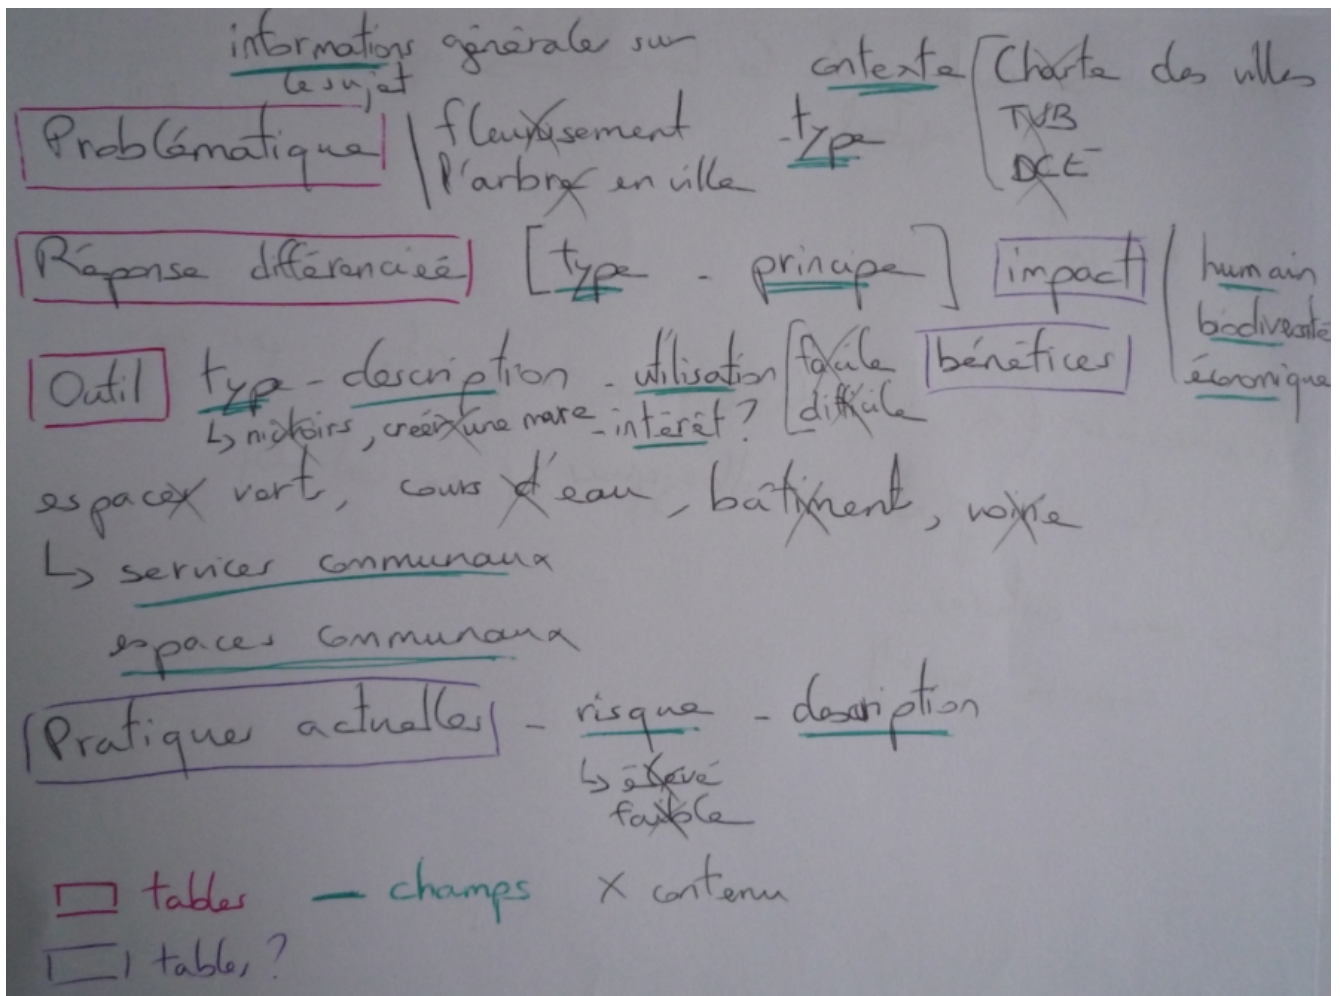 informations générales sur
le sujet
contexte Charte des villes
TVB
DCE
Problématique fleurissement - type
l'arbre en ville
Réponse différenciée [type - principe] impact humain
biodiversité
économique
Outil type - description - utilisation facile bénéfices
difficile
↳ nichoirs, créer une mare - intérêt ?
espaces vert, cours d'eau, bâtiment, voirie
↳ services communaux
espaces communaux
Pratiques actuelles - risque - description
↳ élevé
faible
tables — champs X contenu
tables ?